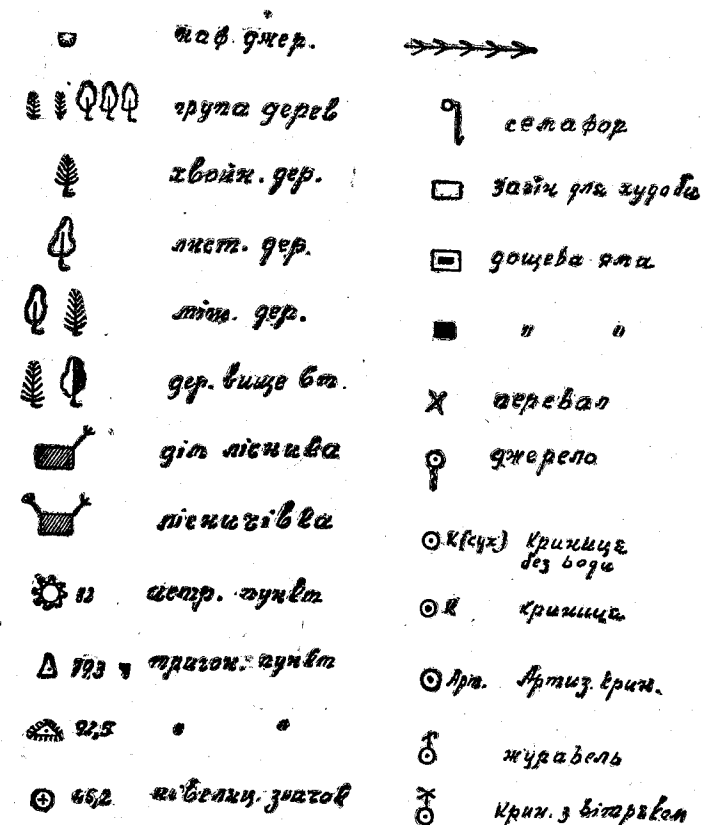 наф. джер.
група дерев
хвойн. дер.
лист. дер.
міш. дер.
дер. вище 6т.
дім лісника
лісничівка
12 астр. пункт
тригон. пункт
92,5 " "
46,2 нівелиц. значок
семафор
Загін для худоби
дощева яма
" "
перевал
джерело
К(сух) Криниця
без води
К криниця
Арт. Артиз. крин.
журавель
крин. з вітряком